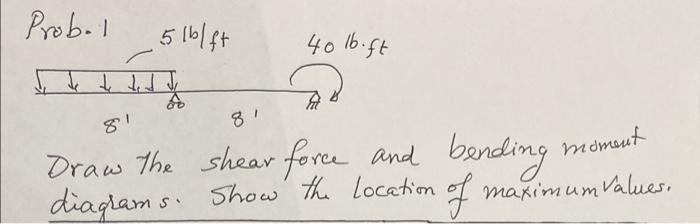 Prob.1 5 lb/ft 40 lb.ft
8' 8'
Draw The shear force and bending moment
diagrams. Show the location of maximum values.